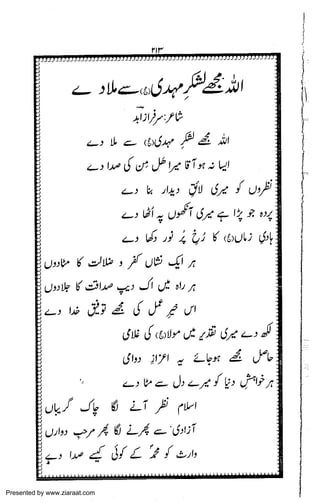 ۲۱۳
اللہ مجھے لشکرِ مہدی(عج) سے ملا دے
شاعر: سرفراز ابد
اللہ مجھے لشکرِ مہدی(عج) سے ملا دے
ایسا نہ ہو آقا میرا ھَل مِن کی صدا دے
نظروں کو میری لائقِ دیدار بنا دے
پردہ جو پڑا ہے میری آنکھوں پہ اُٹھا دے
ہادیِ زماں(عج) کا رُخِ پُر نور دکھا دے
ہر ایک نشاں کفر و ضلالت کا مٹادوں
ہر راہ میں اک دیپ صداقت کا جلادوں
اس خیرِ عمل کی مجھے توفیق خدا دے
لکھ دے میری تقدیر میں مولا(عج) کی غلامی
حاصل مجھے ہوجائے یہ اعزازِ دوامی
ہر خواہشِ دنیا کو میرے دل سے مٹا دے
اسلام نظر آنے لگا چاک گریباں
آزادی سے پھرنے لگا پھر مرحب دوراں
وارث کو محمدؐ کے کوئی کیسے صدا دے
Presented by www.ziaraat.com